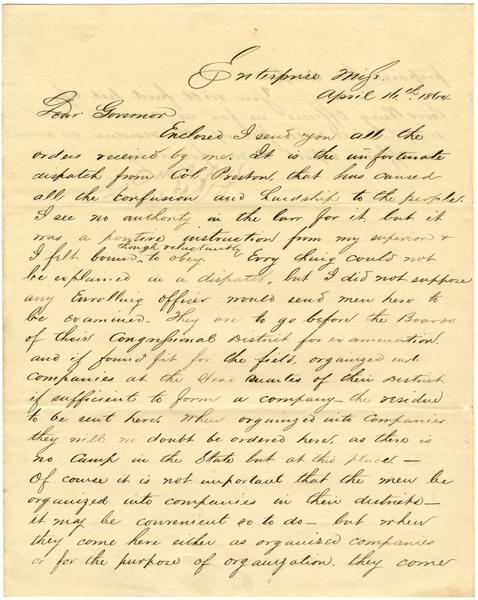 Enterprise Miss.
April 16th. 1864
Dear Governor
Enclosed I send you all the
orders received by me. It is the unfortunate
dispatch from Col Preston, that has caused
all the confusion and hardship to the people.
I see no authority in the law for it, but it
was a positive instruction from my superior &
I felt bound, though reluctantly to obey. Every thing could not
be explained in a dispatch, but I did not suppose
any Enrolling officer would send men here to
be examined. They are to go before the Boards
of their Congressional District for examination,
and if found fit for the field, organized into
companies at the Head Quarters of their District
if sufficient to form a company – the residue
to be sent here. When organized into Companies
they will no doubt be ordered here, as there is
no Camp in the State but at this place. –
Of course it is not important that the men be
organized into companies in their districts –
it may be convenient so to do – but when
they come here either as organized companies
or for the purpose of organization, they come